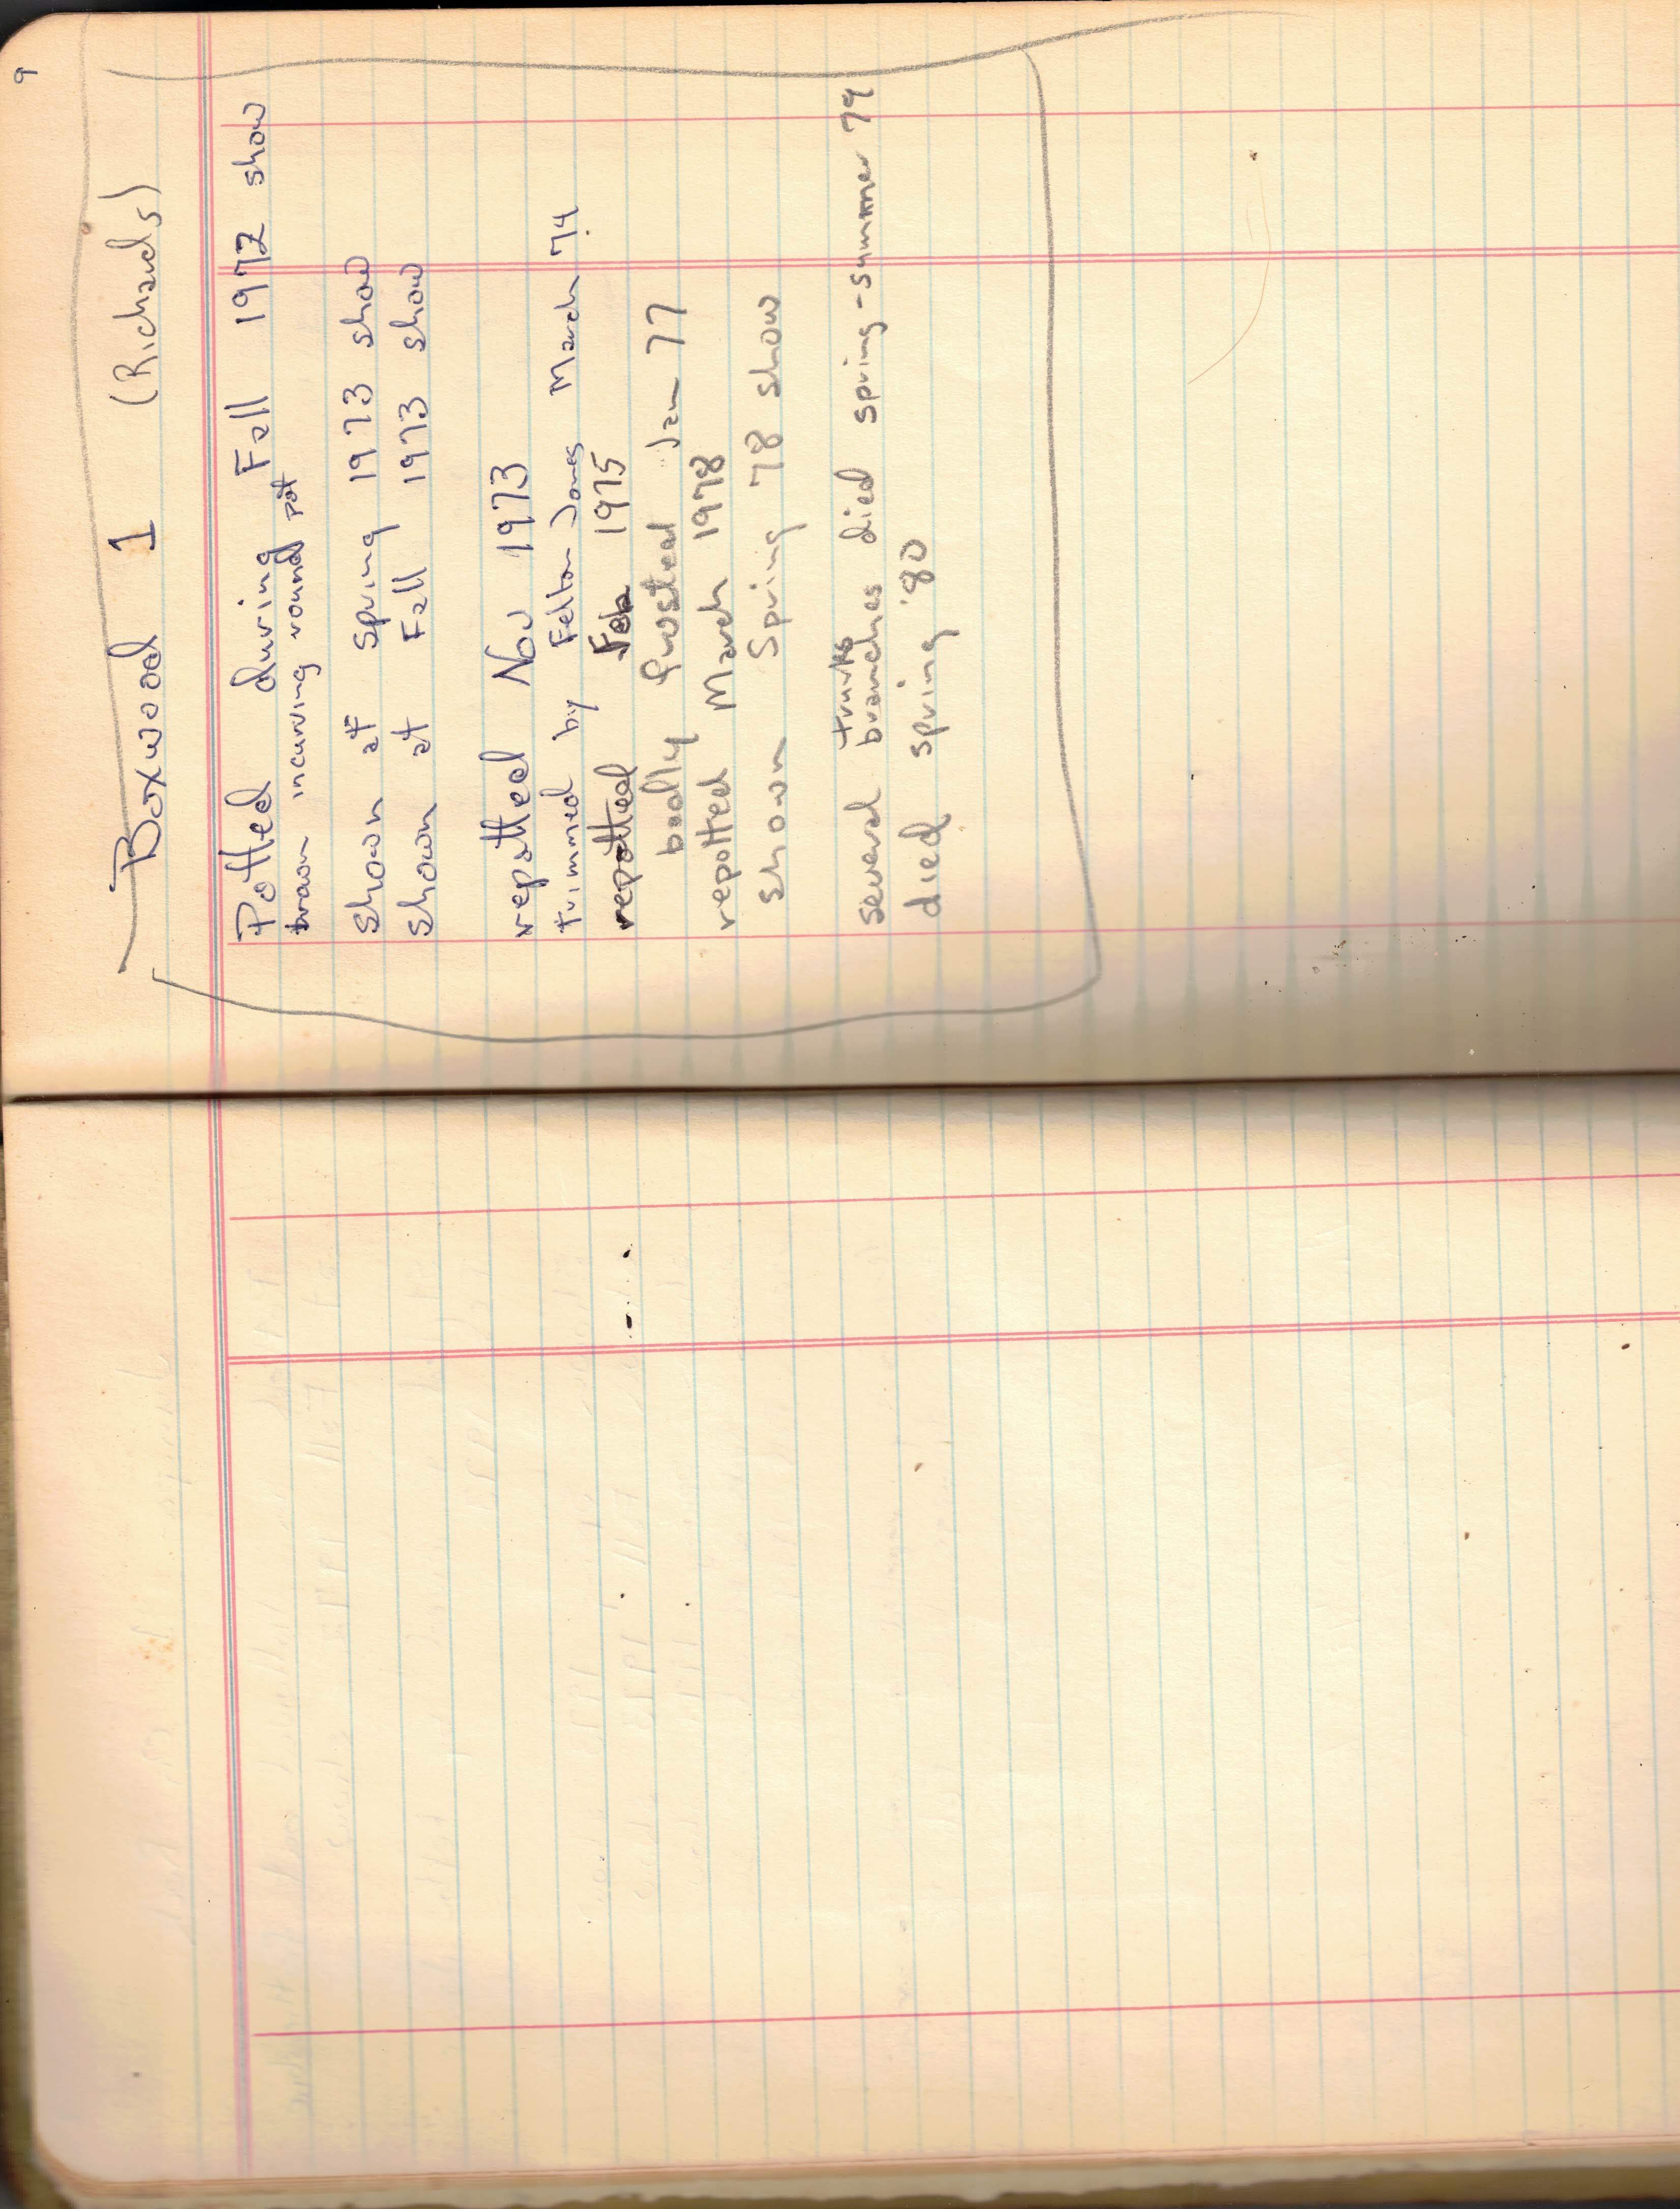 9
Boxwood 1 (Richards)
Potted during Fall 1972 show
brown incurving round pot
shown at spring 1973 show
shown at Fall 1973 show
repotted Nov 1973
trimmed by Felton Jones March 74
repotted Feb 1975
badly frosted Jan 77
repotted March 1978
shown Spring 78 show
trunks
several branches died spring-summer 79
died spring '80